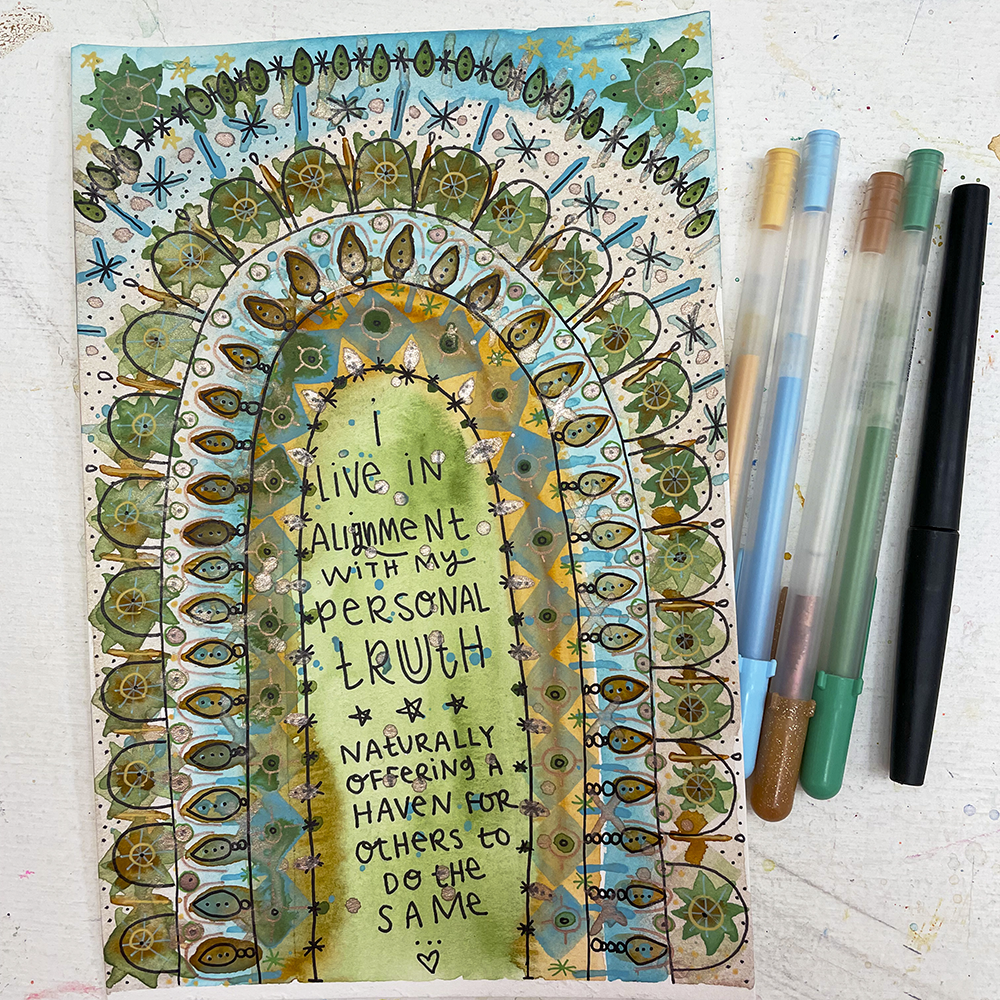 i
LIVE iN
ALiJNMeNt
WITH MY
PeRSONAL
tRUtH
NATURALLY
OFFERiNg A
HAVEN FOR
OtHERS tO
DO tHE
SAMe